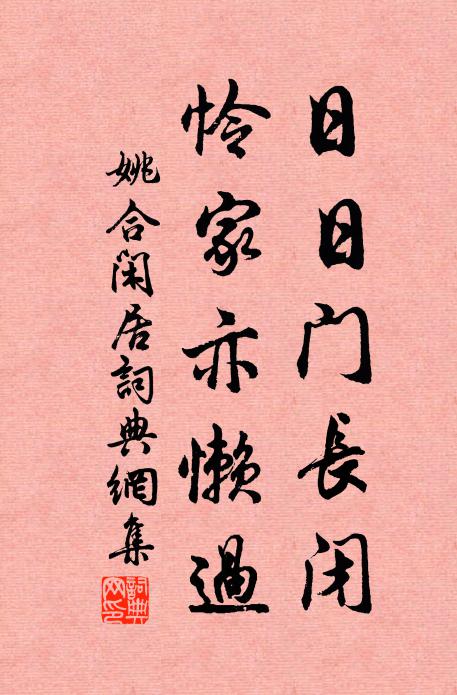 日日門長闭
怜家亦懒過
姚合閑居詞典網集
詞典